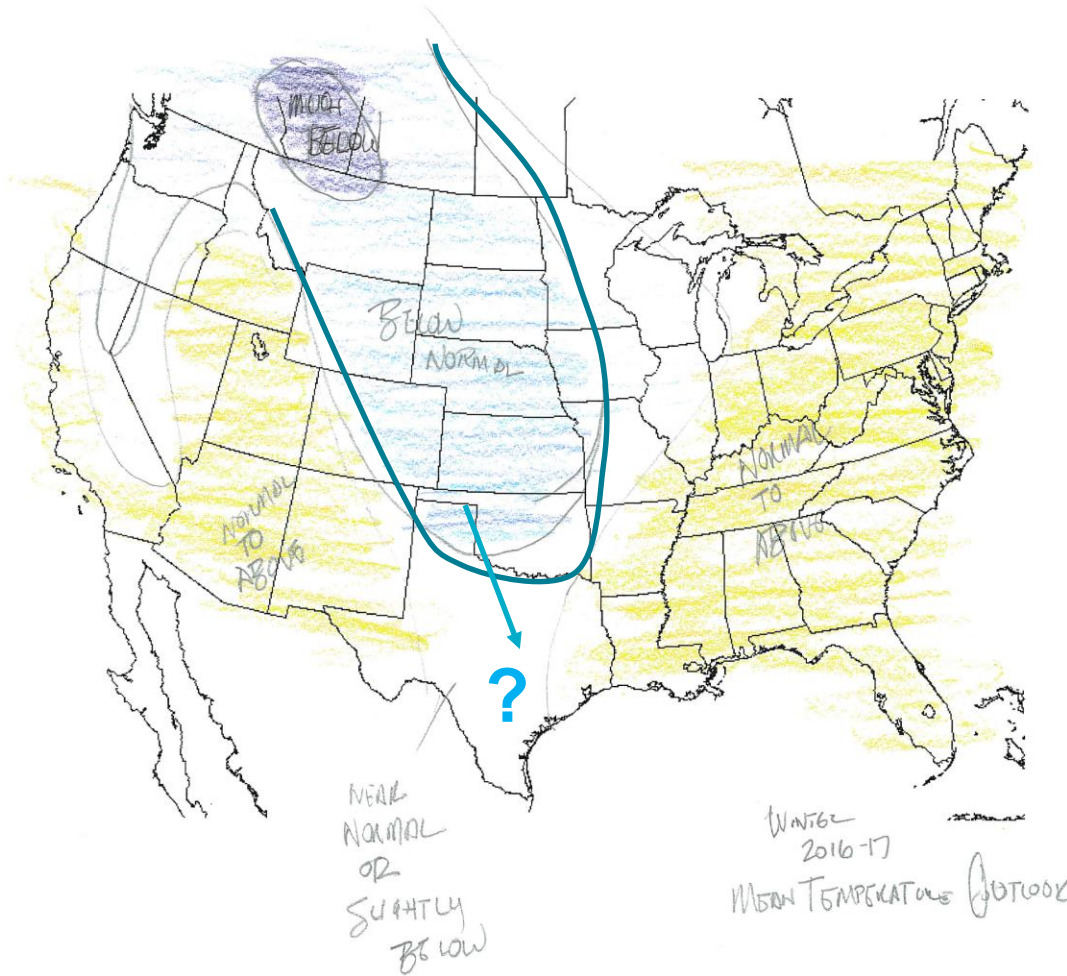 MUCH
BELOW
BELOW
NORMAL
NORMAL
TO
ABOVE
NORMAL
TO
ABOVE
?
NEAR
NORMAL
OR
SLIGHTLY
BELOW
WINTER
2016-17
MEAN TEMPERATURE OUTLOOK